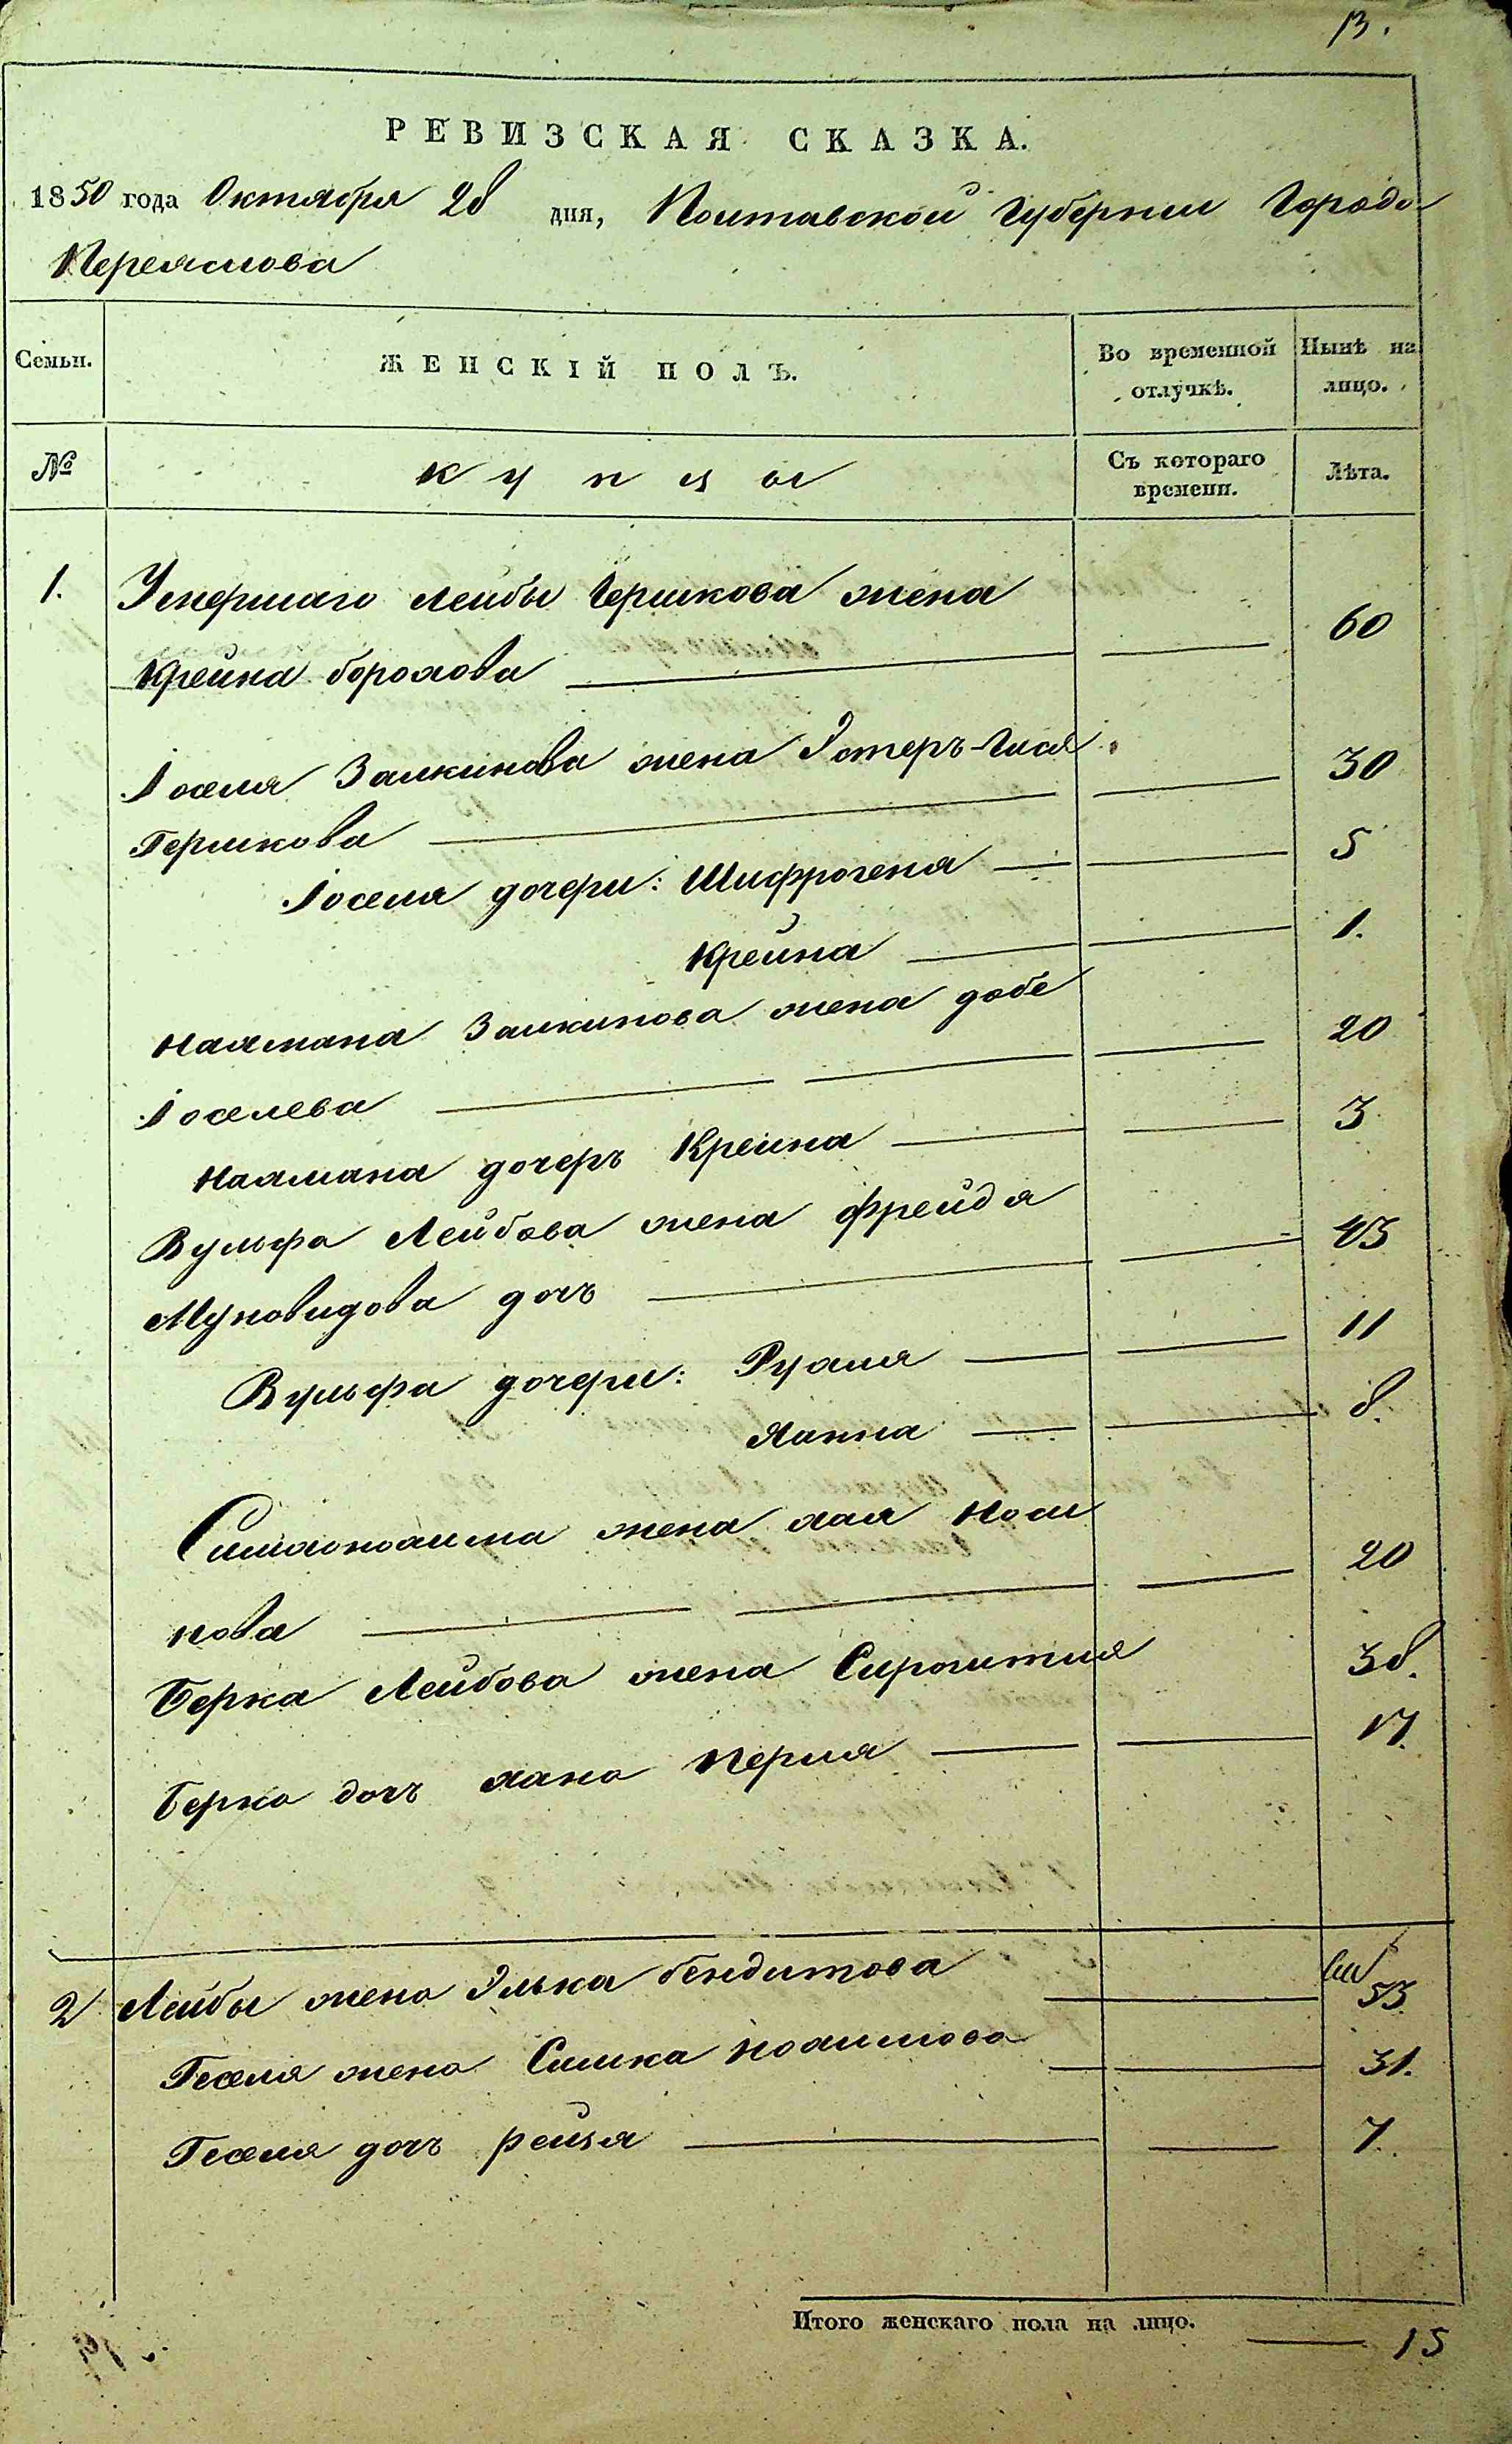 13.
РЕВИЗСКАЯ СКАЗКА.
1850 года Октября 28 дня, Полтавской Губернии Города
Переяслова
Семьи.
ЖЕНСКІЙ ПОЛЪ.
Во временной отлучкѣ.
Нынѣ на лицо.
№
Купцы
Съ котораго времени.
Лѣта.
1. Умершаго Лейбы Гершкова жена
Крейна борохова 60
Іоселя Залкинова жена Эстеръ-Гися
Гершкова 30
Іоселя дочери: Шифрогеня 5
Крейна 1.
Нахмана Залкинова жена добе
Іоселева 20
Нахмана дочеръ Крейна 3
Вульфа Лейбова жена фрейда
дочъ 43
Вульфа дочери: Рухля 11
Ханна 8.
жена хая Носи
нова 20
Берка Лейбова жена 38.
Берка дочъ хана Перля 17.
2 Лейбы жена Элька бендитова 53
Геселя жена Симка нохимова 31.
Геселя дочъ рейзя 7.
Итого женскаго пола на лицо. 15